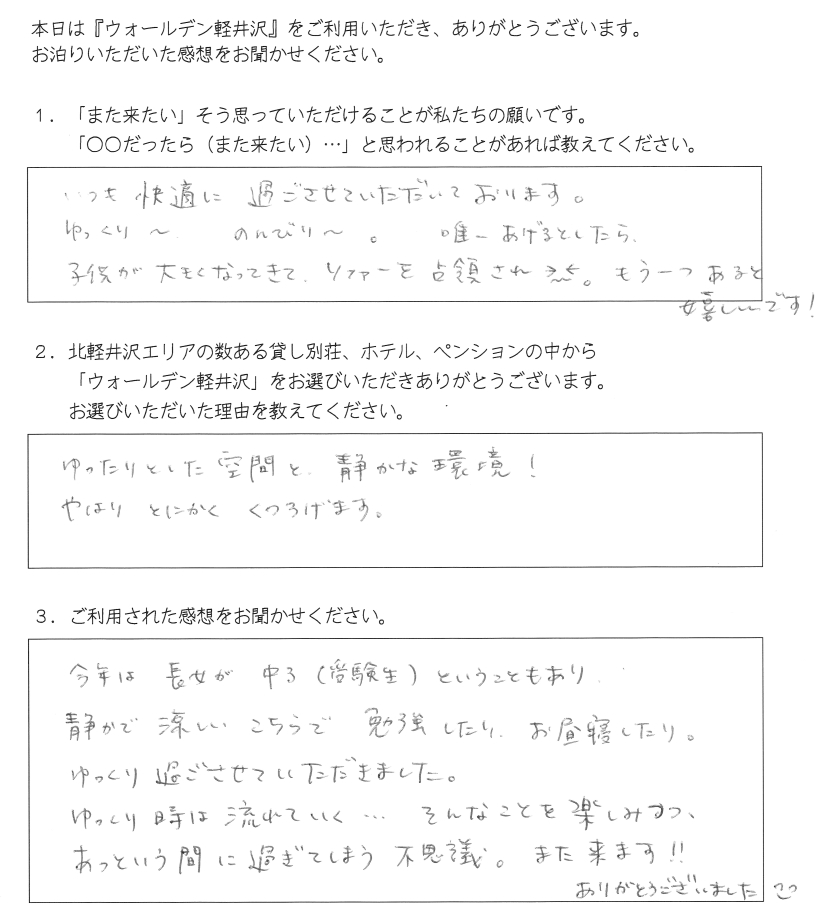 本日は『ウォールデン軽井沢』をご利用いただき、ありがとうございます。
お泊りいただいた感想をお聞かせください。
1．「また来たい」そう思っていただけることが私たちの願いです。
「〇〇だったら（また来たい）…」と思われることがあれば教えてください。
いつも快適に過ごさせていただいております。
ゆっくり〜 のんびり〜。 唯一あげるとしたら、
子供が大きくなってきて、ソファーを占領され。もう一つあると
嬉しいです!
2．北軽井沢エリアの数ある貸し別荘、ホテル、ペンションの中から
「ウォールデン軽井沢」をお選びいただきありがとうございます。
お選びいただいた理由を教えてください。
ゆったりとした空間と、静かな環境!
やはり とにかく くつろげます。
3．ご利用された感想をお聞かせください。
今年は 長女が 中3（受験生）ということもあり
静かで 涼しい こちらで 勉強したり、お昼寝したり。
ゆっくり過ごさせていただきました。
ゆっくり時は流れていく… そんなことを楽しみつつ、
あっという間に過ぎてしまう不思議。また来ます!!
ありがとうございました